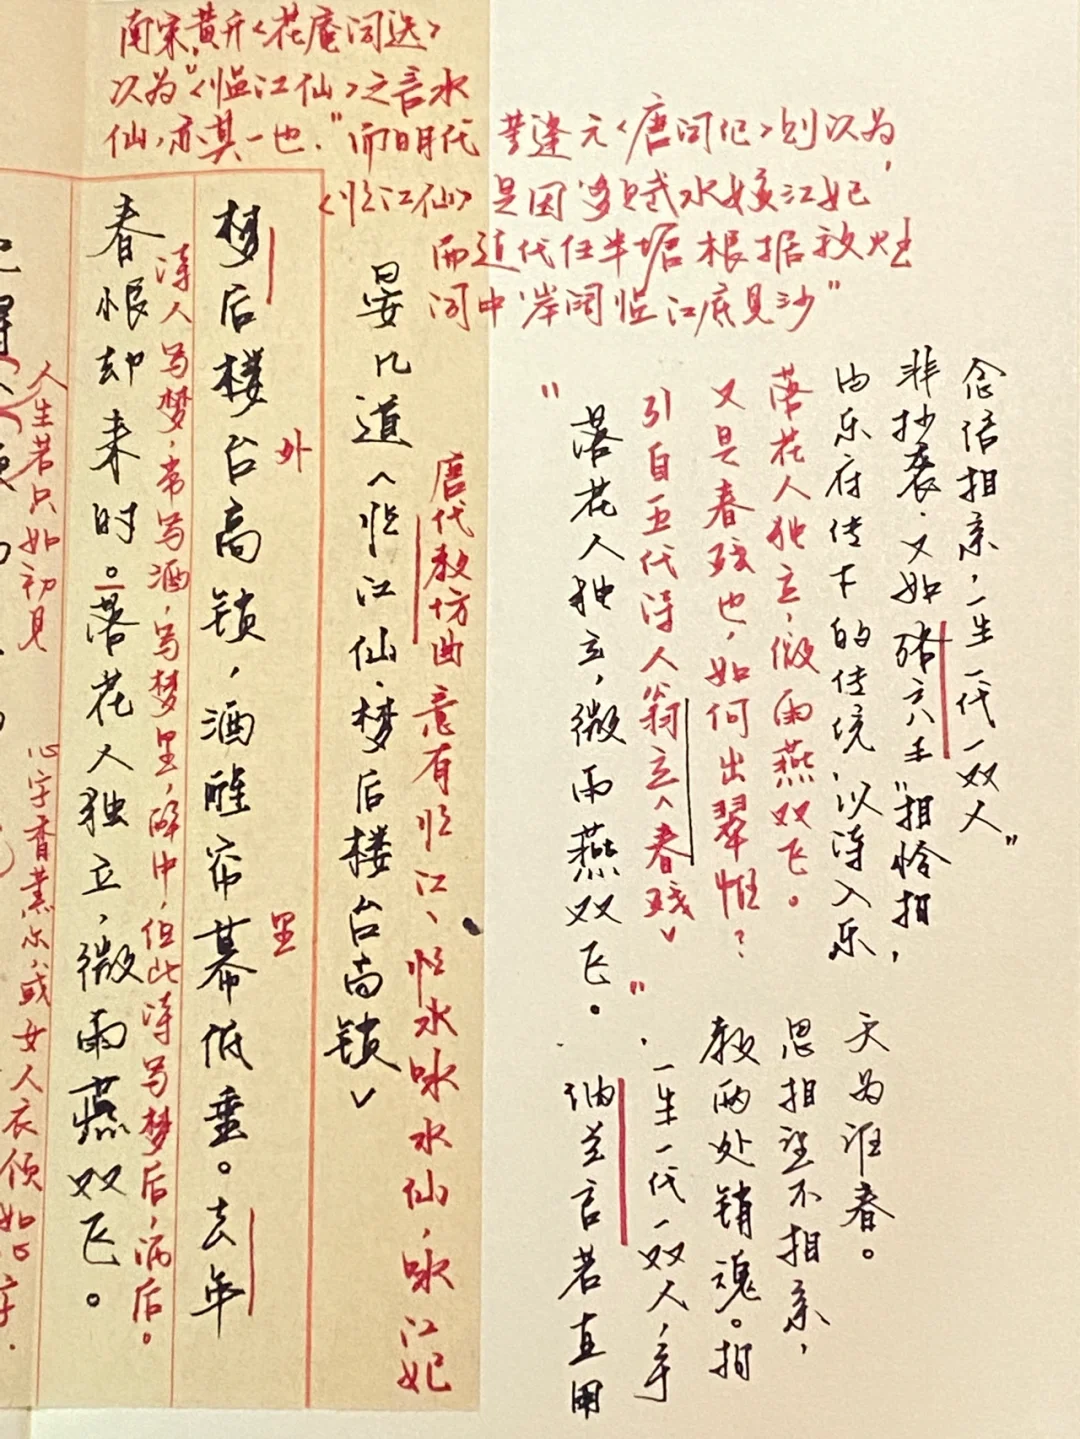 南宋黄升《花庵词选》
以为"《临江仙》之言水
仙，亦其一也。"而明代董逢元《唐词纪》则以为，
《临江仙》是因多赋水媛江妃
而近代任半塘根据敦煌
词中"岸阔临江底见沙"
唐代教坊曲 意有临江、临水咏水仙，咏江妃
晏几道《临江仙·梦后楼台高锁》
梦后楼台高锁，酒醒帘幕低垂。去年
外
里
诗人写梦，常写酒，写梦里，醉中，但此诗写梦后，酒后。
春恨却来时。落花人独立，微雨燕双飞。
人生若只如初见
心字香熏尔，或女人衣领如心字.
"落花人独立，微雨燕双飞。"
引自五代诗人翁宏《春残》
又是春残也，如何出翠帷？
落花人独立，微雨燕双飞。
纳兰容若直用
一生一代一双人，争
教两处销魂。相
思相望不相亲，
天为谁春。
由乐府传下的传统，以诗入乐，
非抄袭.又如骆宾王"相怜相，
念倍相亲，一生一代一双人"